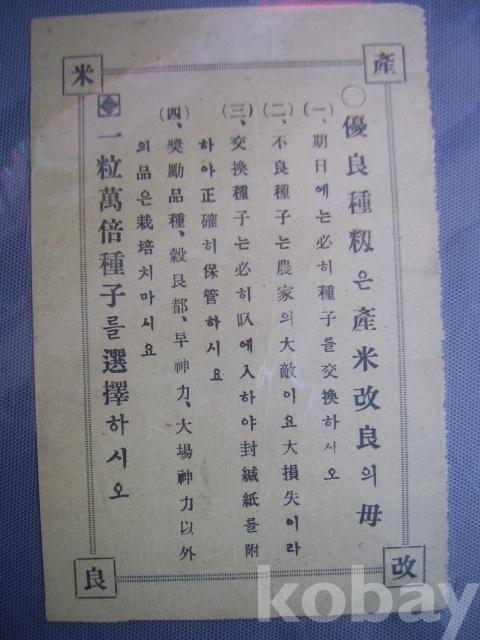 産
米
改
良
○優良種籾은産米改良의母
(一)、期日에는必히種子를交換하시오
(二)、不良種子는農家의大敵이요大損失이라
(三)、交換種子는必히叺에入하야封緘紙를附
하야正確히保管하시요
(四)、獎勵品種、穀良都、早神力、大場神力以外
의品은栽培치마시요
一粒萬倍種子를選擇하시오
kobay